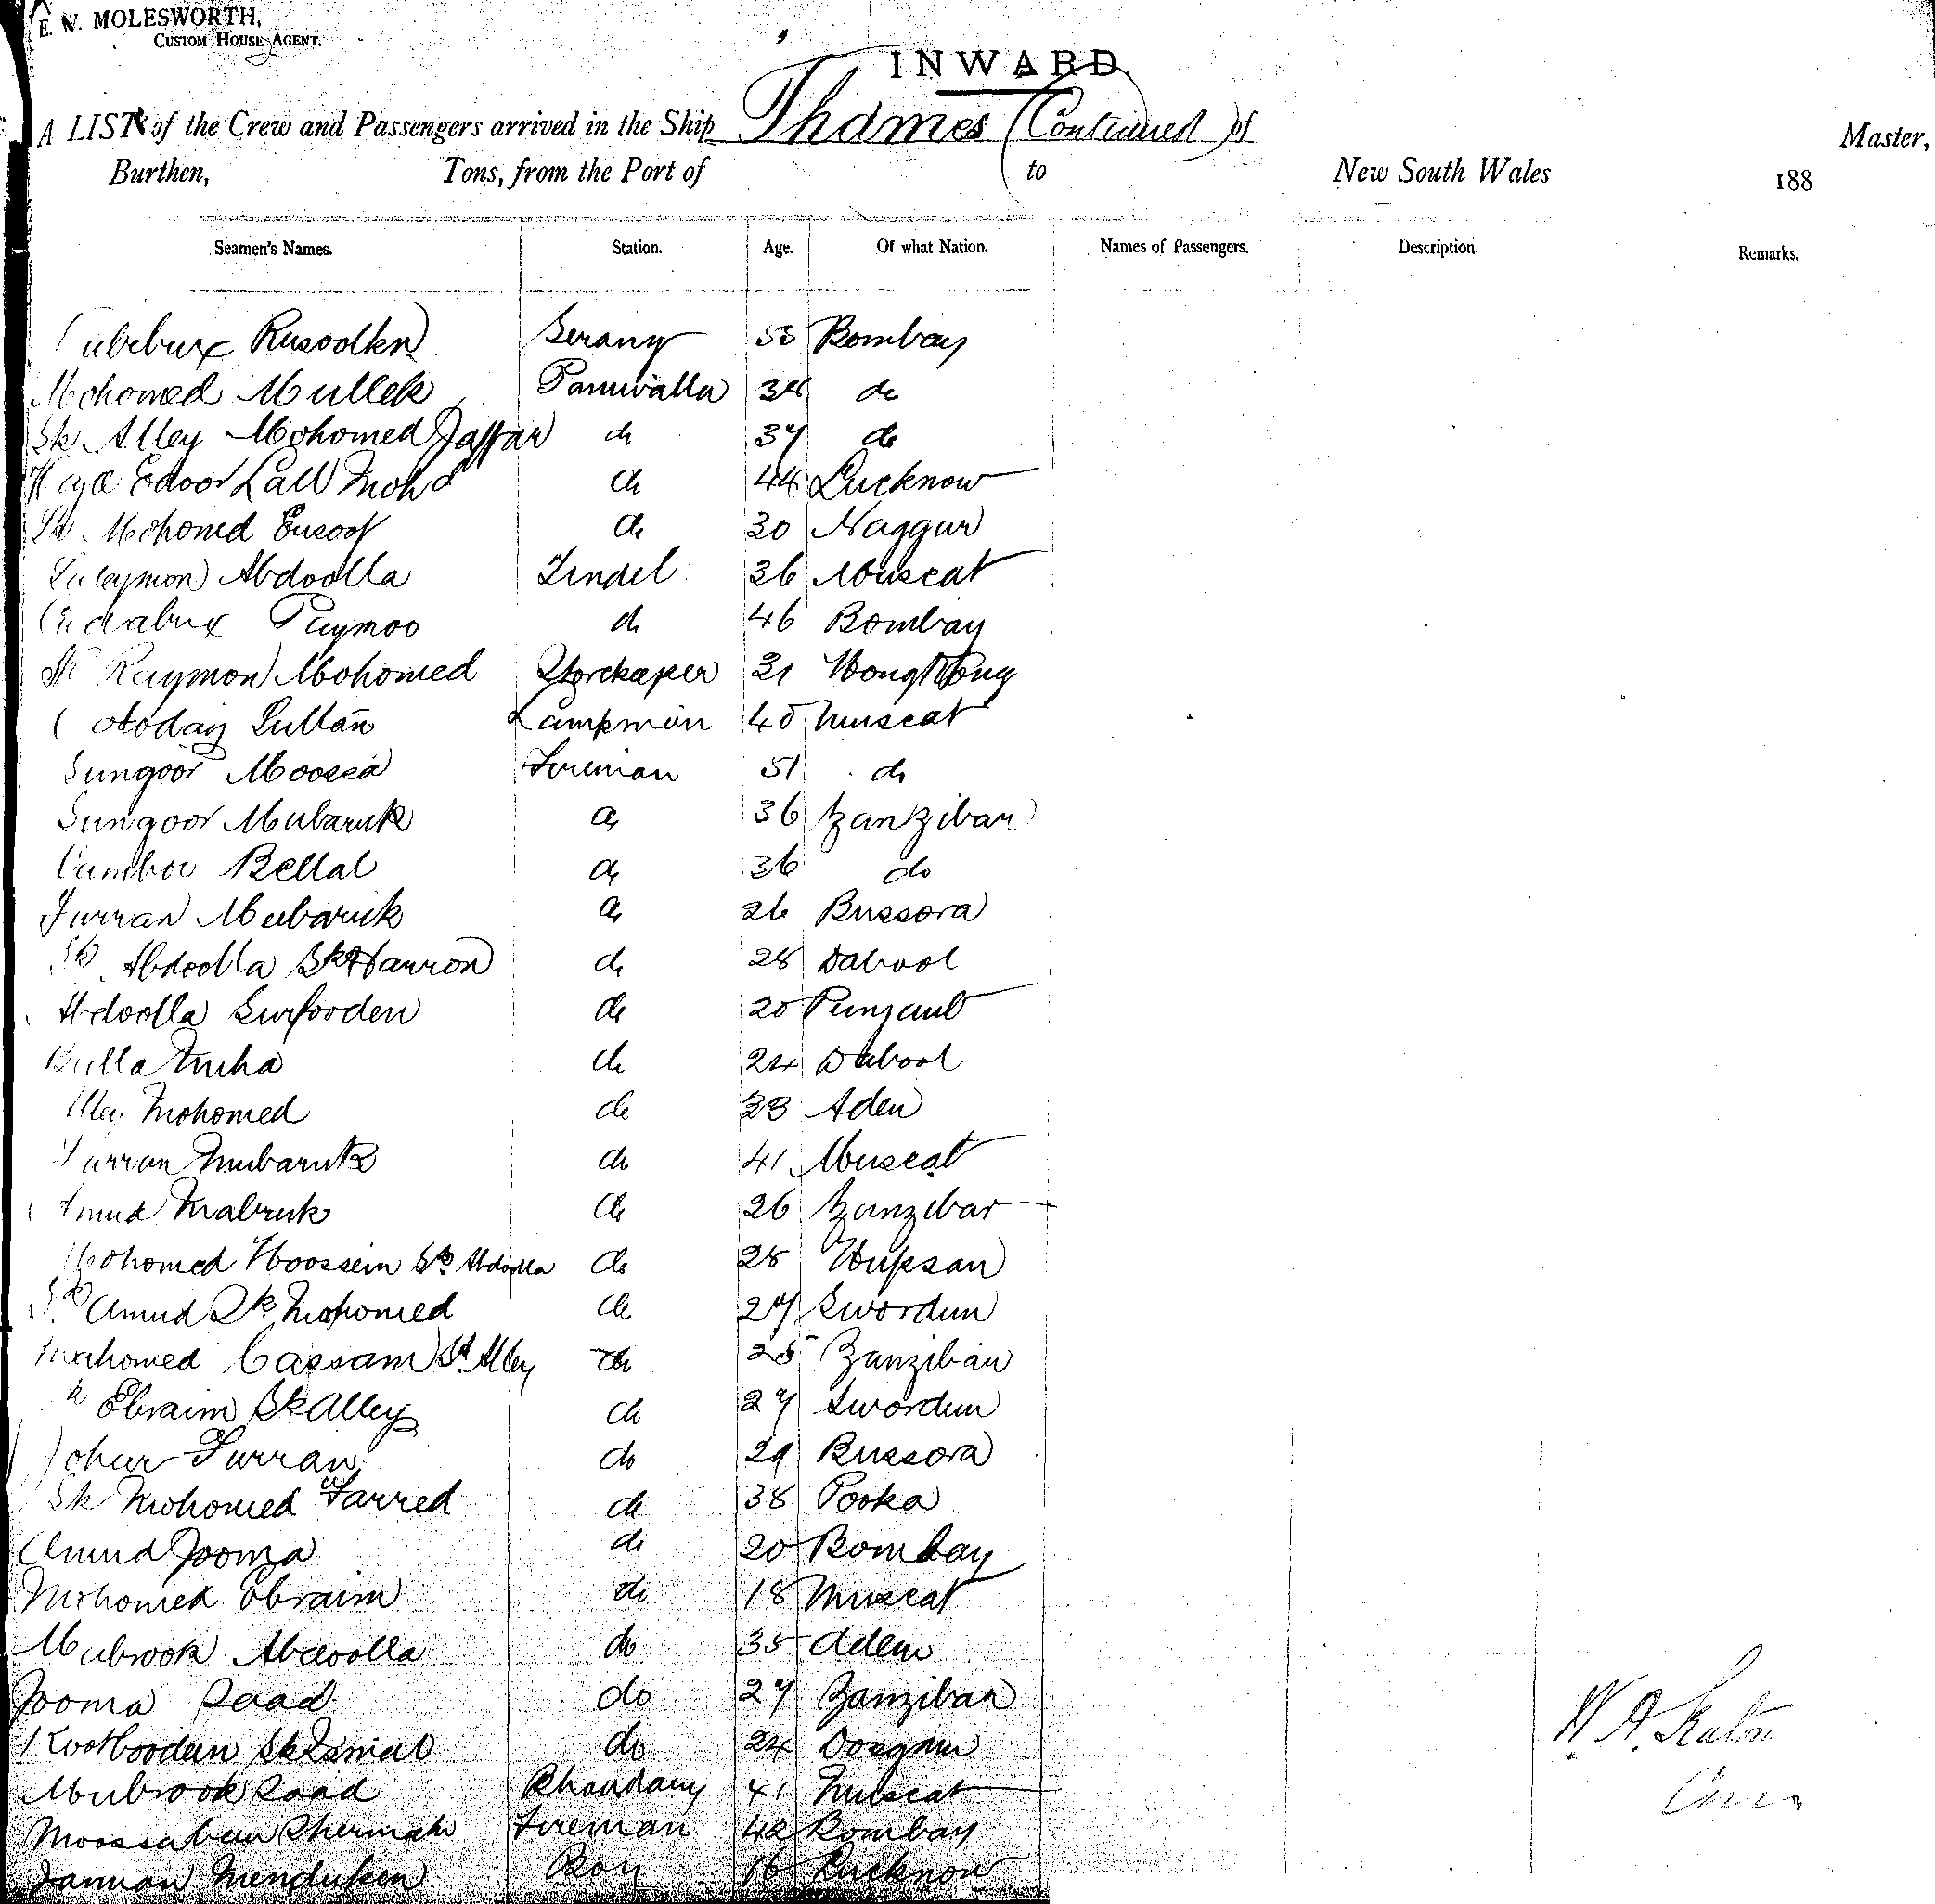 E. W. MOLESWORTH,
CUSTOM HOUSE AGENT.
INWARD.
A LIST of the Crew and Passengers arrived in the Ship Thames (Continued) of Master,
Burthen, Tons, from the Port of to New South Wales 188
Seamen's Names. Station. Age. Of what Nation. Names of Passengers. Description. Remarks.
Serang Bombay
Mohomed Mullek 34 do
Sk Alley Mohomed Jaffar do 37 do
Edoor Lall Mohd do 44 Lucknow
Mohomed Eusoof do 30 Naggur
Suleymon Abdoolla Tindel 36 Muscat
do 46 Bombay
Raymon Mohomed Storekeper 31 Hong Kong
Sultan Lampman 40 Muscat
Sungoor Moosea Fireman 51 do
Sungoor Mubaruk do 36 Zanzibar
Bellal do 36 do
Furran Mubaruk do 26 Bussora
Sk Abdoolla Sk Harron do 28 Dabool
Abdoolla do 20 Punjaub
Bulla do 24 Dabool
Alley Mohomed do 33 Aden
Furran Mubaruk do 41 Muscat
Amud Mabruk do 26 Zanzibar
Mohomed Hoossein Sk Abdoolla do 28 Hupsan
Sk Amud Sk Mohomed do 27 Swordun
Mahomed Cassam Sk Alley do 25 Zanzibar
Ebraim Sk Alley do 27 Swordun
Johur Furran do 29 Bussora
Sk Mohomed Farred do 38 Pooka
Amud Jooma do 20 Bombay
Mohomed Ebraim do 18 Muscat
Mubrook Abdoolla do 35 Aden
Jooma Saad do 27 Zanzibar
Kootboodeen Sk Ismal do 24
Mubrook Saad 41 Muscat
Fireman 42 Bombay
Boy 16 Lucknow